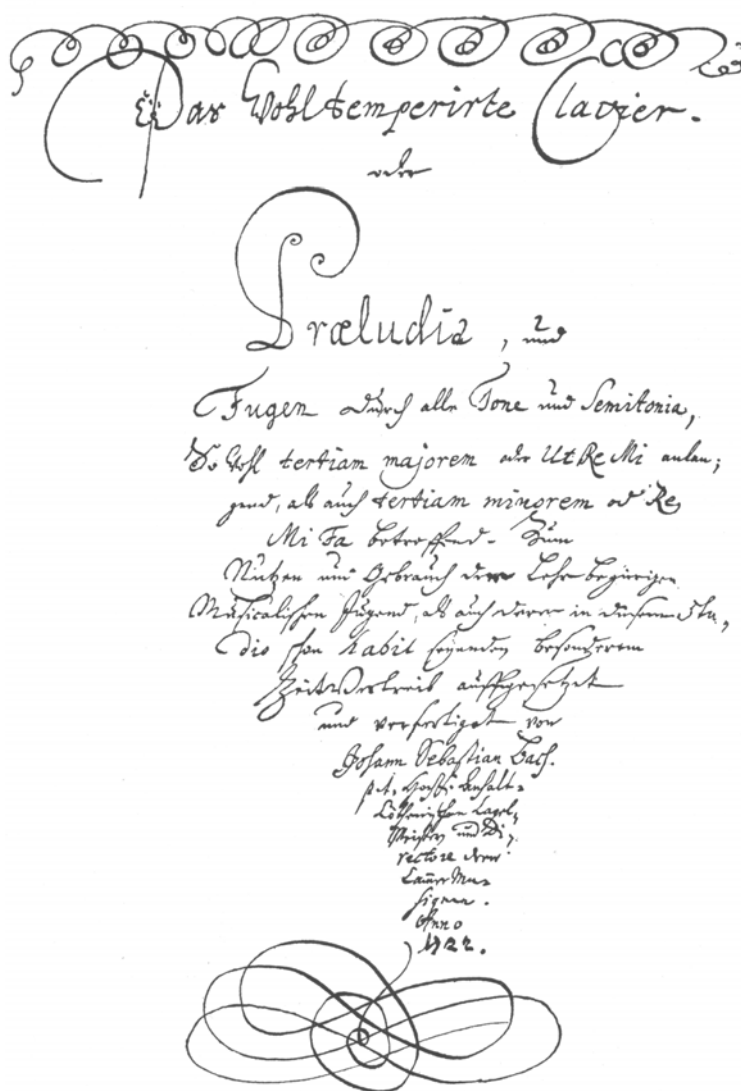 Das Wohltemperirte Clavier.
oder
Præludia, und
Fugen durch alle Tone und Semitonia,
So wohl tertiam majorem oder Ut Re Mi anlan,
gend, als auch tertiam minorem od Re
Mi Fa betreffend. Zum
Nutzen und Gebrauch der Lehr-begierigen
Musicalischen Jugend, als auch derer in diesem Stu,
dio schon habil seyenden besonderem
ZeitVertreib auffgesetzet
und verfertiget von
Johann Sebastian Bach.
p. t. Hochf. Anhalt-
Cöthenischen Capel,
Meistern und Di,
rectore derer
CammerMu-
siquen.
Anno
1722.